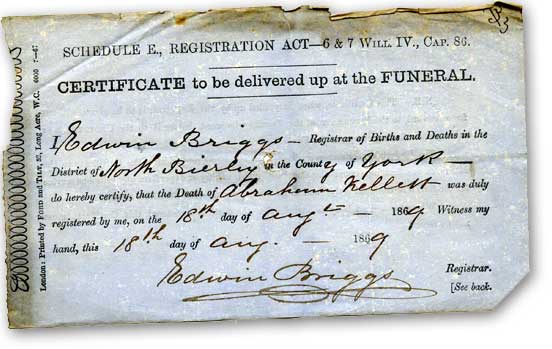 SCHEDULE E., REGISTRATION ACT—6 & 7 WILL. IV., CAP. 86.
CERTIFICATE to be delivered up at the FUNERAL.
I Edwin Briggs — Registrar of Births and Deaths in the
District of North Bierley in the County of York —
do hereby certify, that the Death of Abraham Kellett was duly
registered by me, on the 18th day of Augt — 1869 Witness my
hand, this 18th day of Aug. — 1869
Edwin Briggs Registrar.
[See back.
London: Printed by FORD and TILT, 52, Long Acre, W.C. 6000 7–67